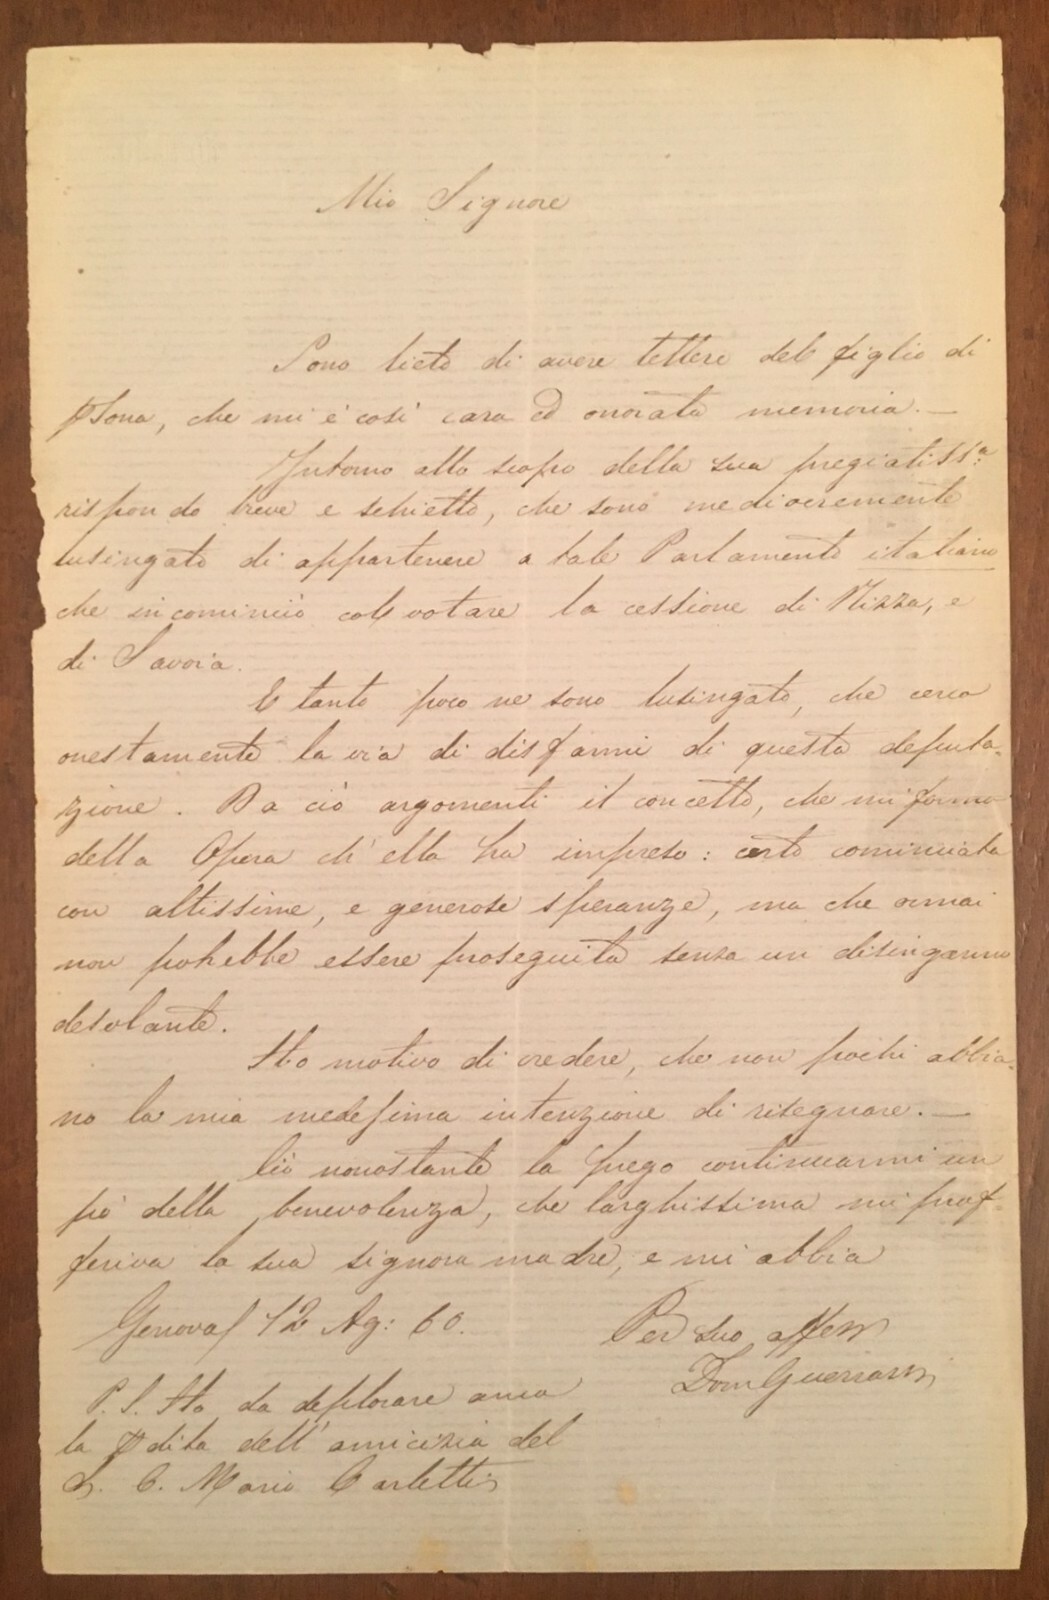 Mio Signore
Sono lieto di avere lettere del figlio di
psona, che mi è così cara ed onorata memoria. —
Intorno allo scopo della sua pregiatissa:
rispondo breve e schietto, che sono mediocremente
lusingato di appartenere a tale Parlamento italiano
che incominciò col votare la cessione di Nizza, e
di Savoia.
E tanto poco ne sono lusingato, che cerco
onestamente la via di disfarmi di questa deputa-
zione. Da ciò argomenti il concetto, che mi formo
della Opera ch'ella ha impreso: certo cominciata
con altissime, e generose speranze, ma che ormai
non potrebbe essere proseguita senza un disinganno
desolante.
Ho motivo di credere, che non pochi abbia-
no la mia medesima intenzione di risegnare. —
Ciò nonostante la prego continuarmi un
pò della benevolenza, che larghissima mi prof-
feriva la sua signora madre, e mi abbia
Genova/ 12 Ag: 60.
Per suo affem
Dom Guerrazzi
P. S. Ho da deplorare anco
la pdita dell'amicizia del
S. C. Mario Carletti